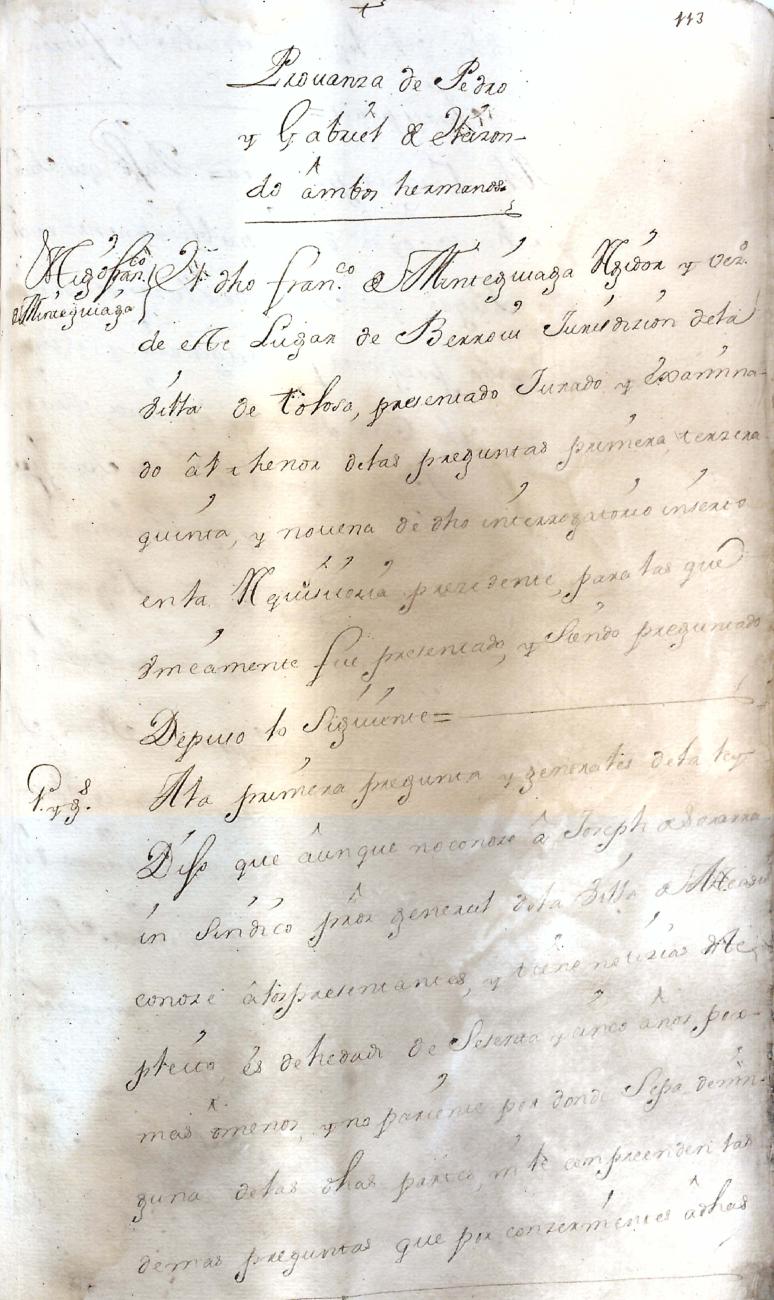 113
Prouanza de Pedro
y Gabriel de
do âmbos hermanos
fran.co
de Minteguiaga
dho fran.co de Minteguiaga Rejidor y vez.o
de este Lugar de Berroui Jurisdizion dela
Villa de tolosa, presentado Jurado y Examina-
do âl thenor delas preguntas primera, terzera
quinta, y novena de dho interrogatorio inserto
enla Requisitoria prezedente, paralas que
Unicamente fue presentado, y Siendo preguntado
Depuso lo Siguiente =
1.a y g.s
Ala primera pregunta y generales dela ley
Dijo que âunque noconoze â Joseph de
in Sindico pror general dela Villa de
conoze âlospresentantes, y tiene notizias deste
pleito, es dehedad de Setenta y cinco años poco
mas ômenos, y no pariente por donde Sepa denin-
guna delas dhas partes, ni le comprenden las
demas preguntas que por conzernientes âdhas